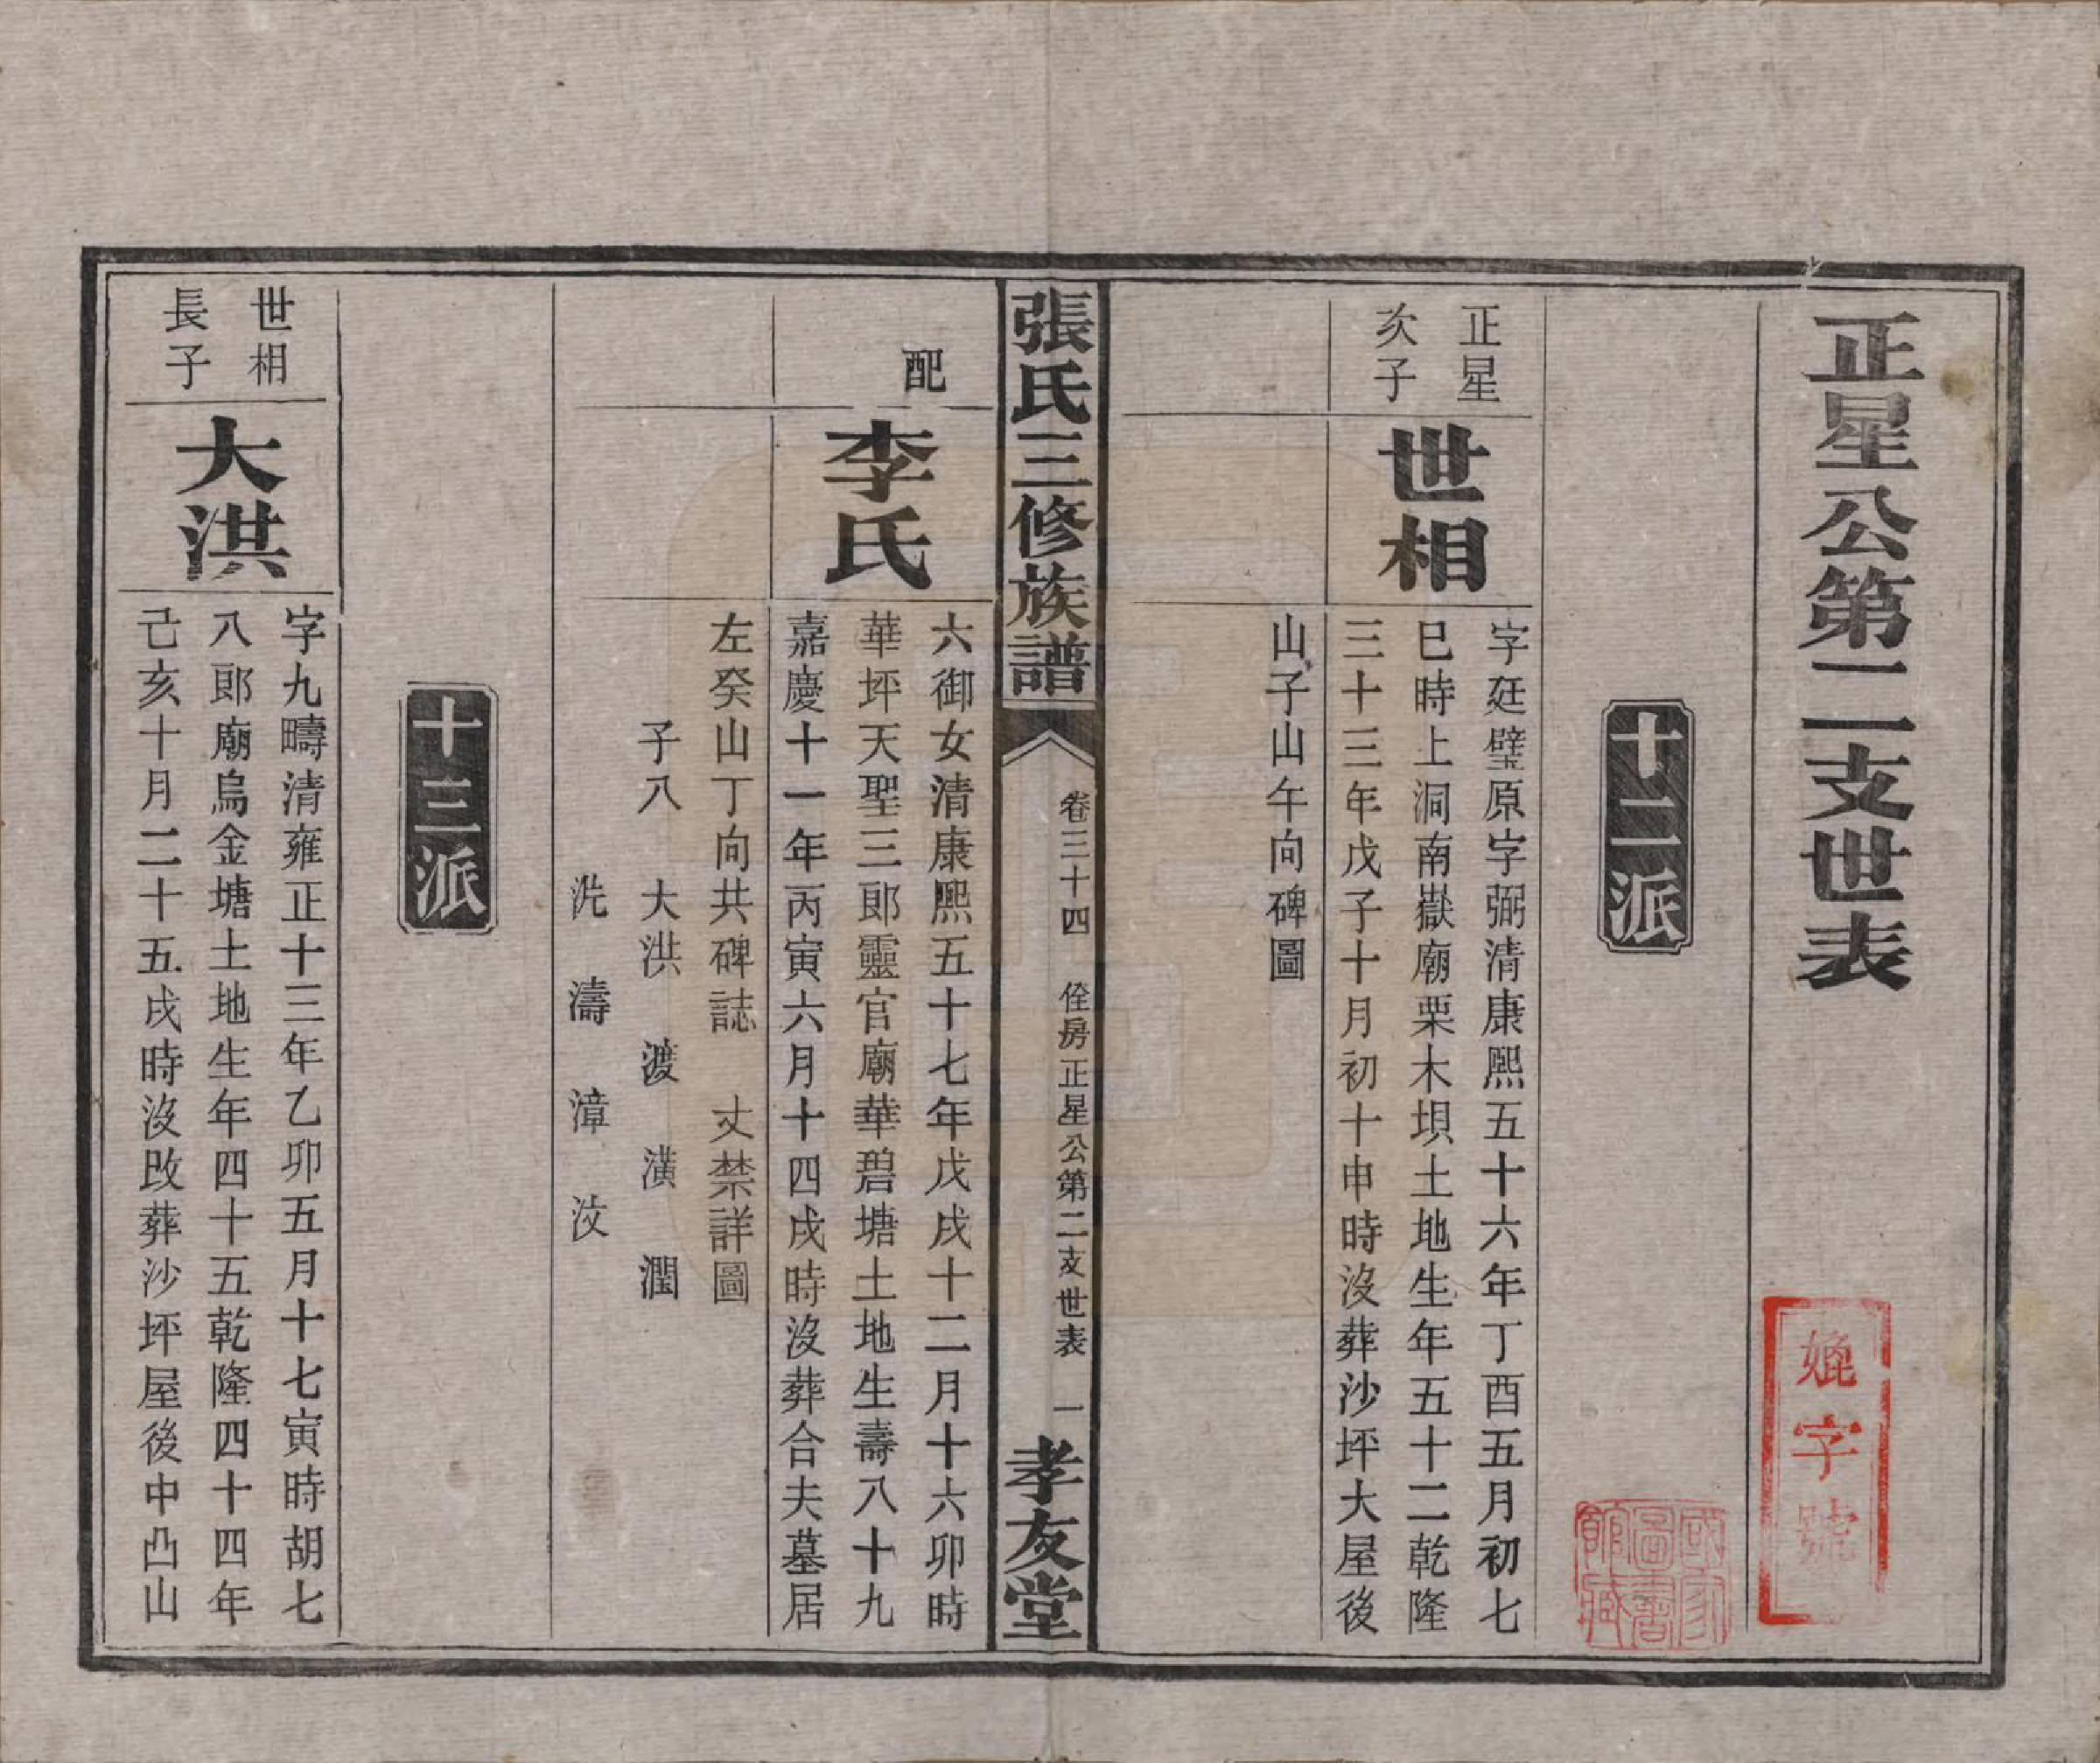 正星公第二支世表
十二派
正星
次子
世相
字廷璧原字弼清康熙五十六年丁酉五月初七
巳時上洞南嶽廟栗木垻土地生年五十二乾隆
三十三年戊子十月初十申時沒葬沙坪大屋後
山子山午向碑圖
張氏三修族譜
卷三十四
佺房正星公第二支世表
一
孝友堂
配
李氏
六御女清康熙五十七年戊戌十二月十六卯時
華坪天聖三郎靈官廟華碧塘土地生壽八十九
嘉慶十一年丙寅六月十四戌時沒葬合夫墓居
左癸山丁向共碑誌 丈禁詳圖
子八 大洪 渡 潢 潤
洗 濤 漳 汶
十三派
世相
長子
大洪
字九疇清雍正十三年乙卯五月十七寅時胡七
八郎廟烏金塘土地生年四十五乾隆四十四年
己亥十月二十五戌時沒改葬沙坪屋後中凸山
字號
國家圖書館藏